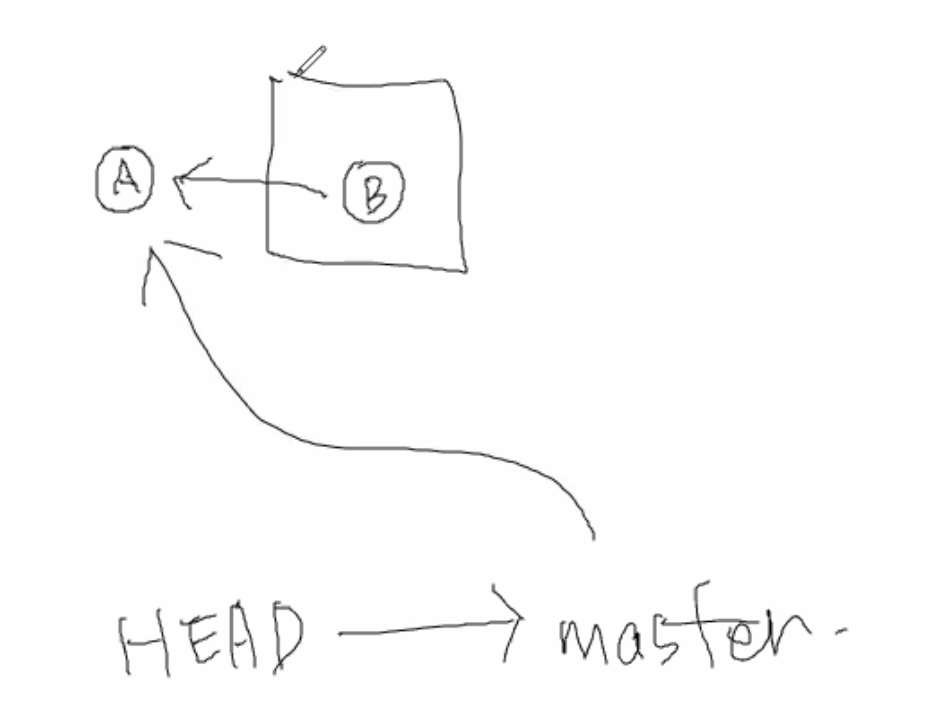 A B
HEAD master.